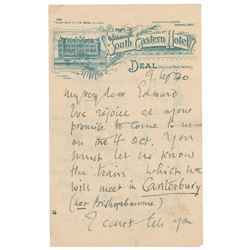 South Eastern Hotel
DEAL
9.
My very dear Edward
We rejoice at your
promise to come to us
on the 4 Oct. You
must let us know
the train which we
will meet in Canterbury
(not Bishopsbourne)
I can't tell you